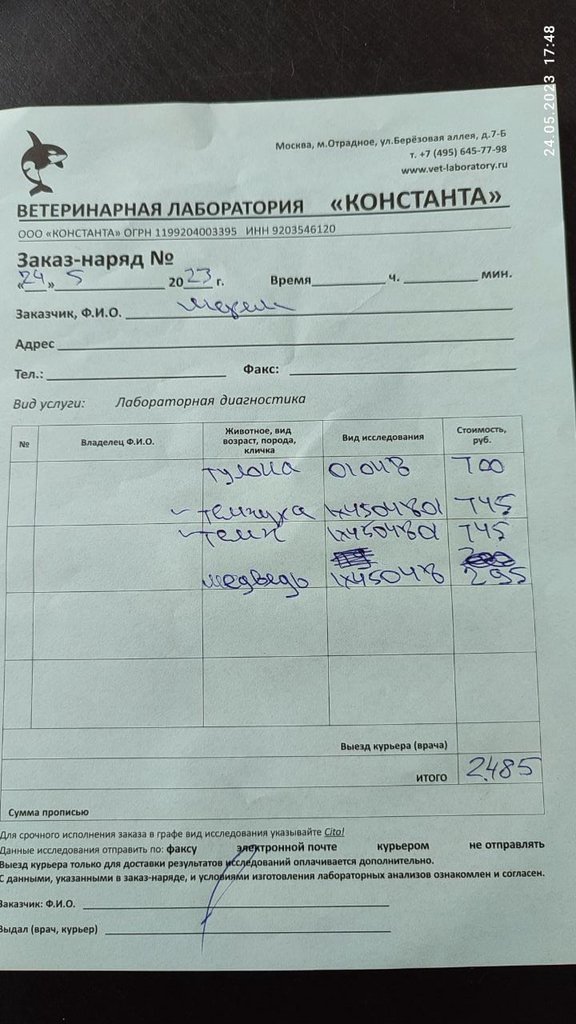 24.05.2023 17:48
Москва, м.Отрадное, ул.Берёзовая аллея, д.7-Б
т. +7 (495) 645-77-98
www.vet-laboratory.ru
ВЕТЕРИНАРНАЯ ЛАБОРАТОРИЯ «КОНСТАНТА»
ООО «КОНСТАНТА» ОГРН 1199204003395 ИНН 9203546120
Заказ-наряд №
«24» 5 2023 г. Время ч. мин.
Заказчик, Ф.И.О.
Адрес
Тел.: Факс:
Вид услуги: Лабораторная диагностика
№ Владелец Ф.И.О. Животное, вид возраст, порода, кличка Вид исследования Стоимость, руб.
01048 700
1x4504801 745
1x4504801 745
медведь 1x45048 295
Выезд курьера (врача)
ИТОГО 2485
Сумма прописью
Для срочного исполнения заказа в графе вид исследования указывайте Cito!
Данные исследования отправить по: факсу электронной почте курьером не отправлять
Выезд курьера только для доставки результатов исследований оплачивается дополнительно.
С данными, указанными в заказ-наряде, и условиями изготовления лабораторных анализов ознакомлен и согласен.
Заказчик: Ф.И.О.
Выдал (врач, курьер)